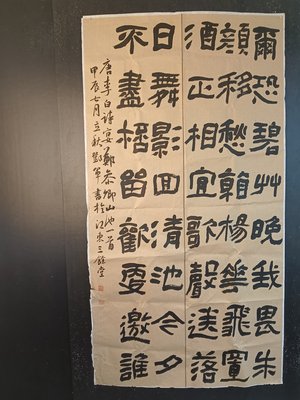 爾恐碧艸晚我畏朱
顏移愁看楊華飛置
酒正相宜歌聲送落
日舞影回清池今夕
不盡桮留歡更邀誰
唐李白詩宴鄭參卿山池一首
甲辰七月立秋軍書於江東三餘堂